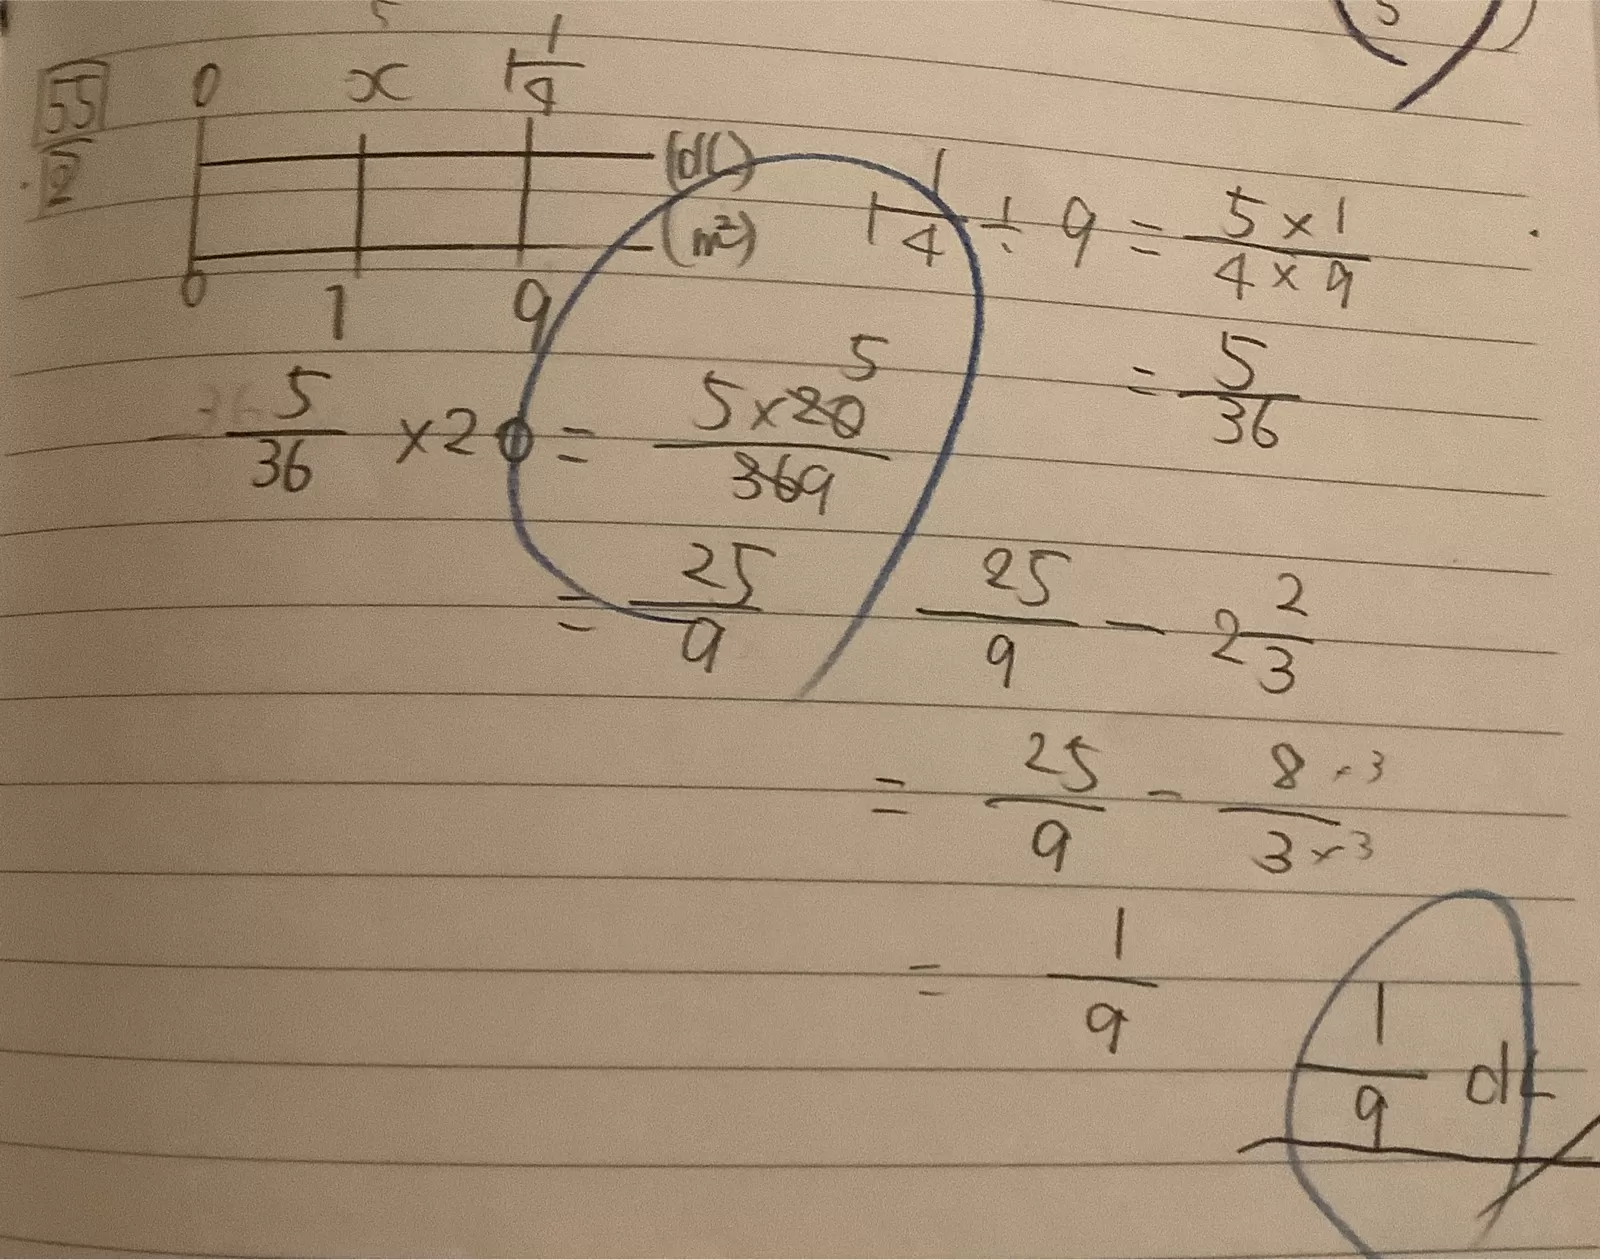 55
2
0 x 1 1/4
(dL)
(m²)
0 1 9
1 1/4 ÷ 9 = 5 × 1 / 4 × 9
= 5/36
5/36 × 20 = 5 × 20 5 / 36 9
= 25/9
25/9 - 2 2/3
= 25/9 - 8 × 3 / 3 × 3
= 1/9
1/9 dL